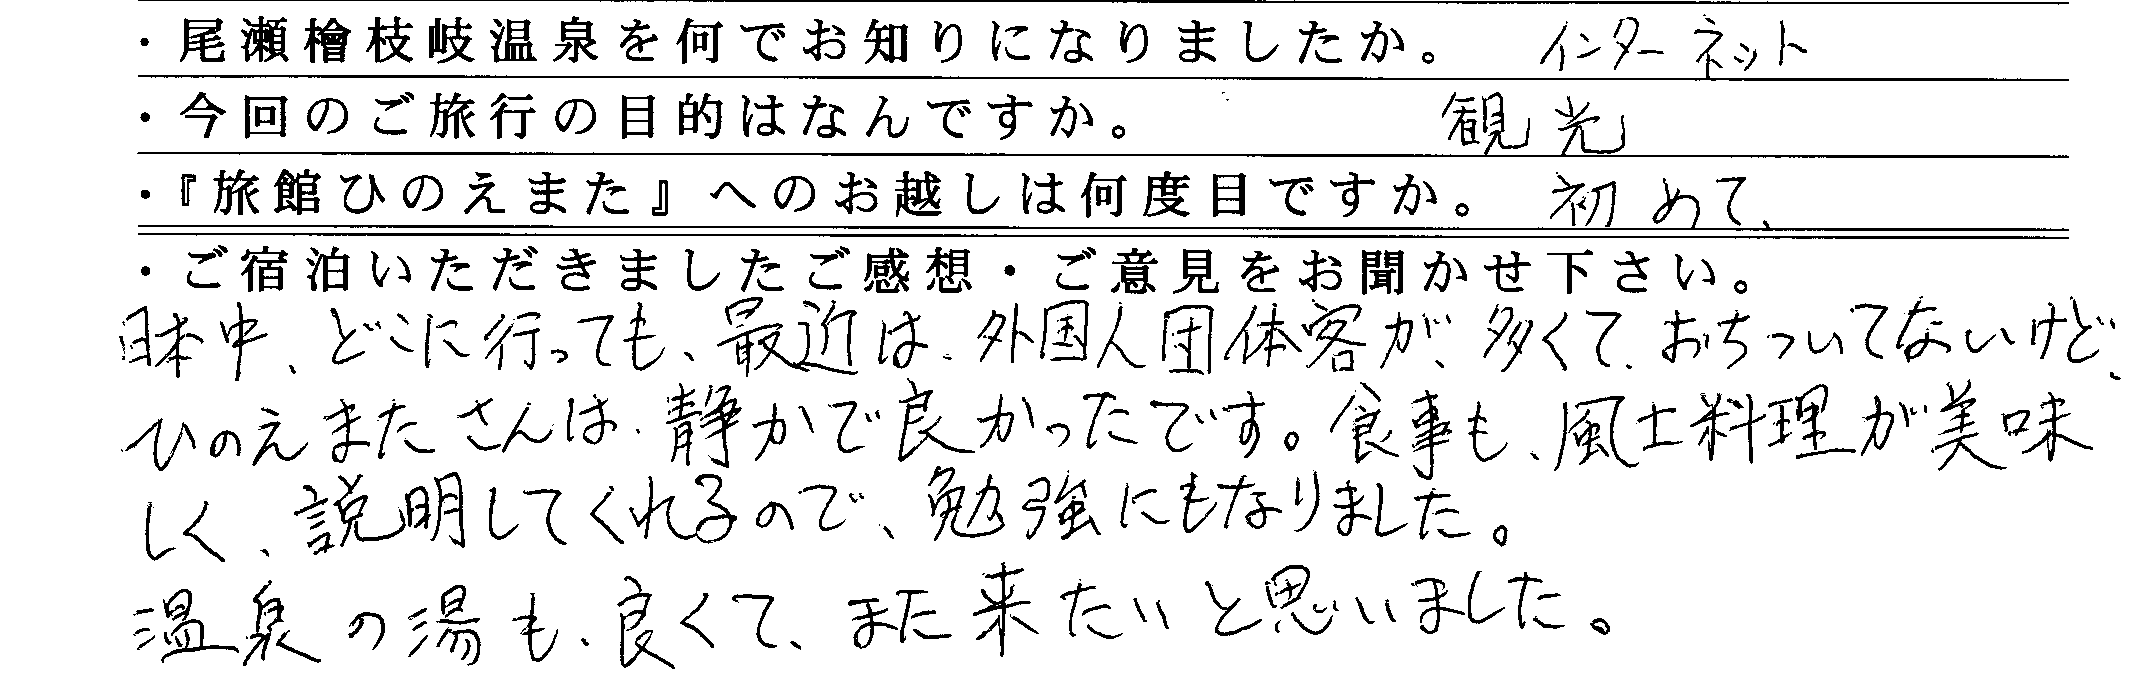 ・尾瀬檜枝岐温泉を何でお知りになりましたか。 インターネット
・今回のご旅行の目的はなんですか。 観光
・『旅館ひのえまた』へのお越しは何度目ですか。 初めて、
・ご宿泊いただきましたご感想・ご意見をお聞かせ下さい。
日本中、どこに行っても、最近は、外国人団体客が、多くて、おちついてないけど、
ひのえまたさんは、静かで良かったです。食事も、風土料理が美味
しく、説明してくれるので、勉強にもなりました。
温泉の湯も、良くて、また来たいと思いました。